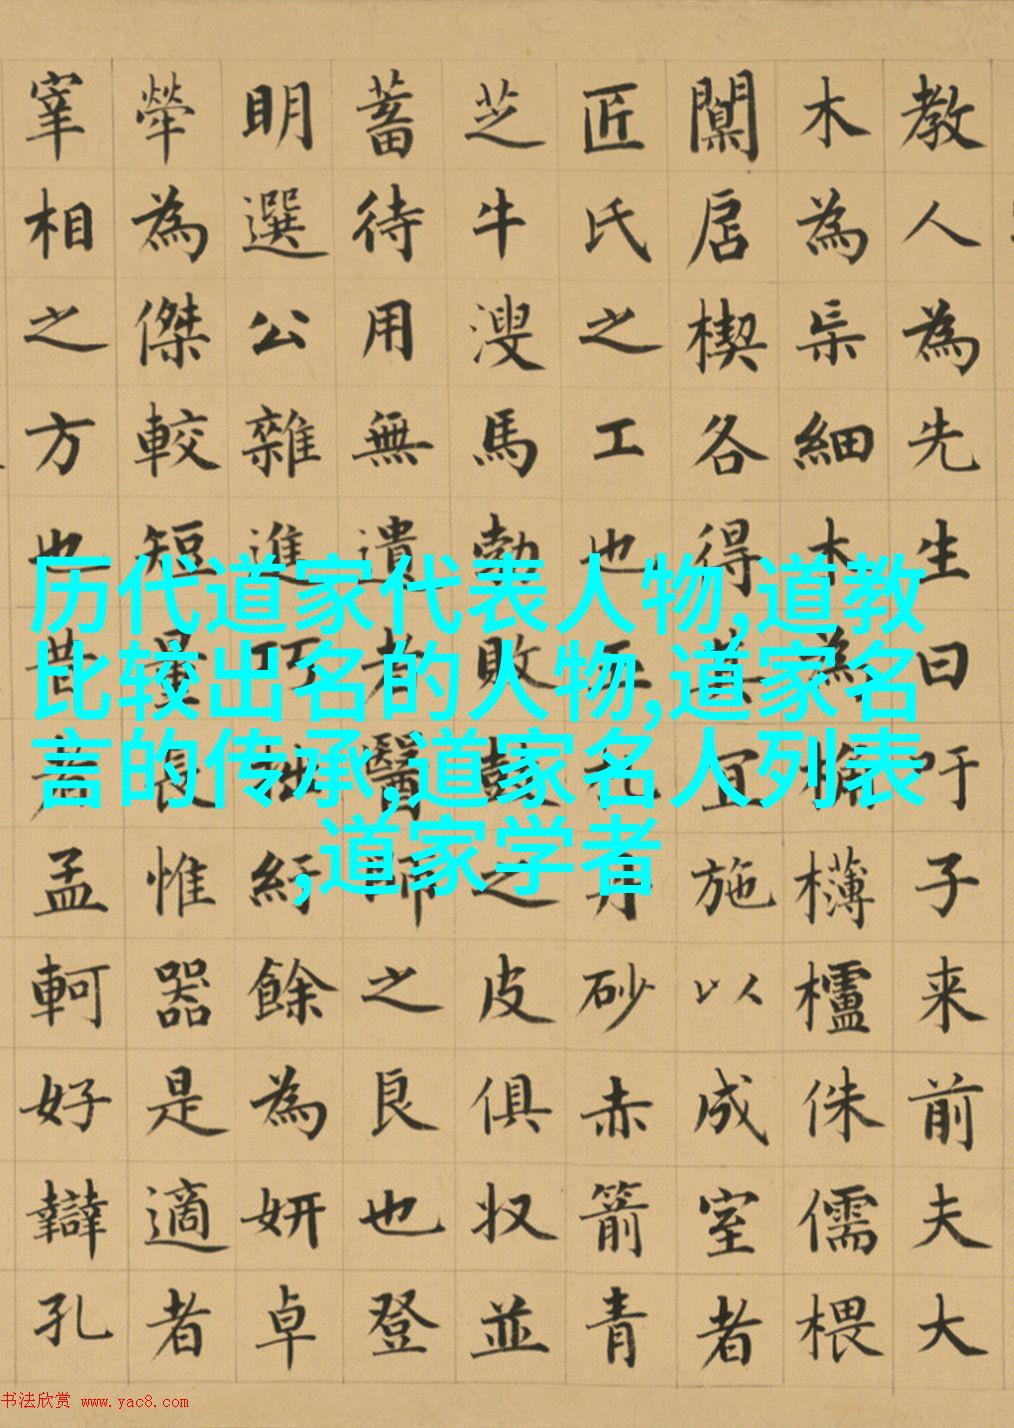 教人為先生曰吁子来前夫大
木為杗細木為桷欂櫨侏儒椳
闑扂楔各得其宜施以成室者
匠氏之工也玉札丹砂赤箭青
芝牛溲馬勃敗鼓之皮俱収並
蓄待用無遺者醫師之良也登
明選公雜進巧拙紆餘為妍卓
犖為傑較短量長惟器是適者
宰相之方也昔者孟軻好辯孔
历代道家代表人物,道教
比较出名的人物,道家名
言的传承,道家名人列表
,道家学者
书法欣赏 www.yac8.com